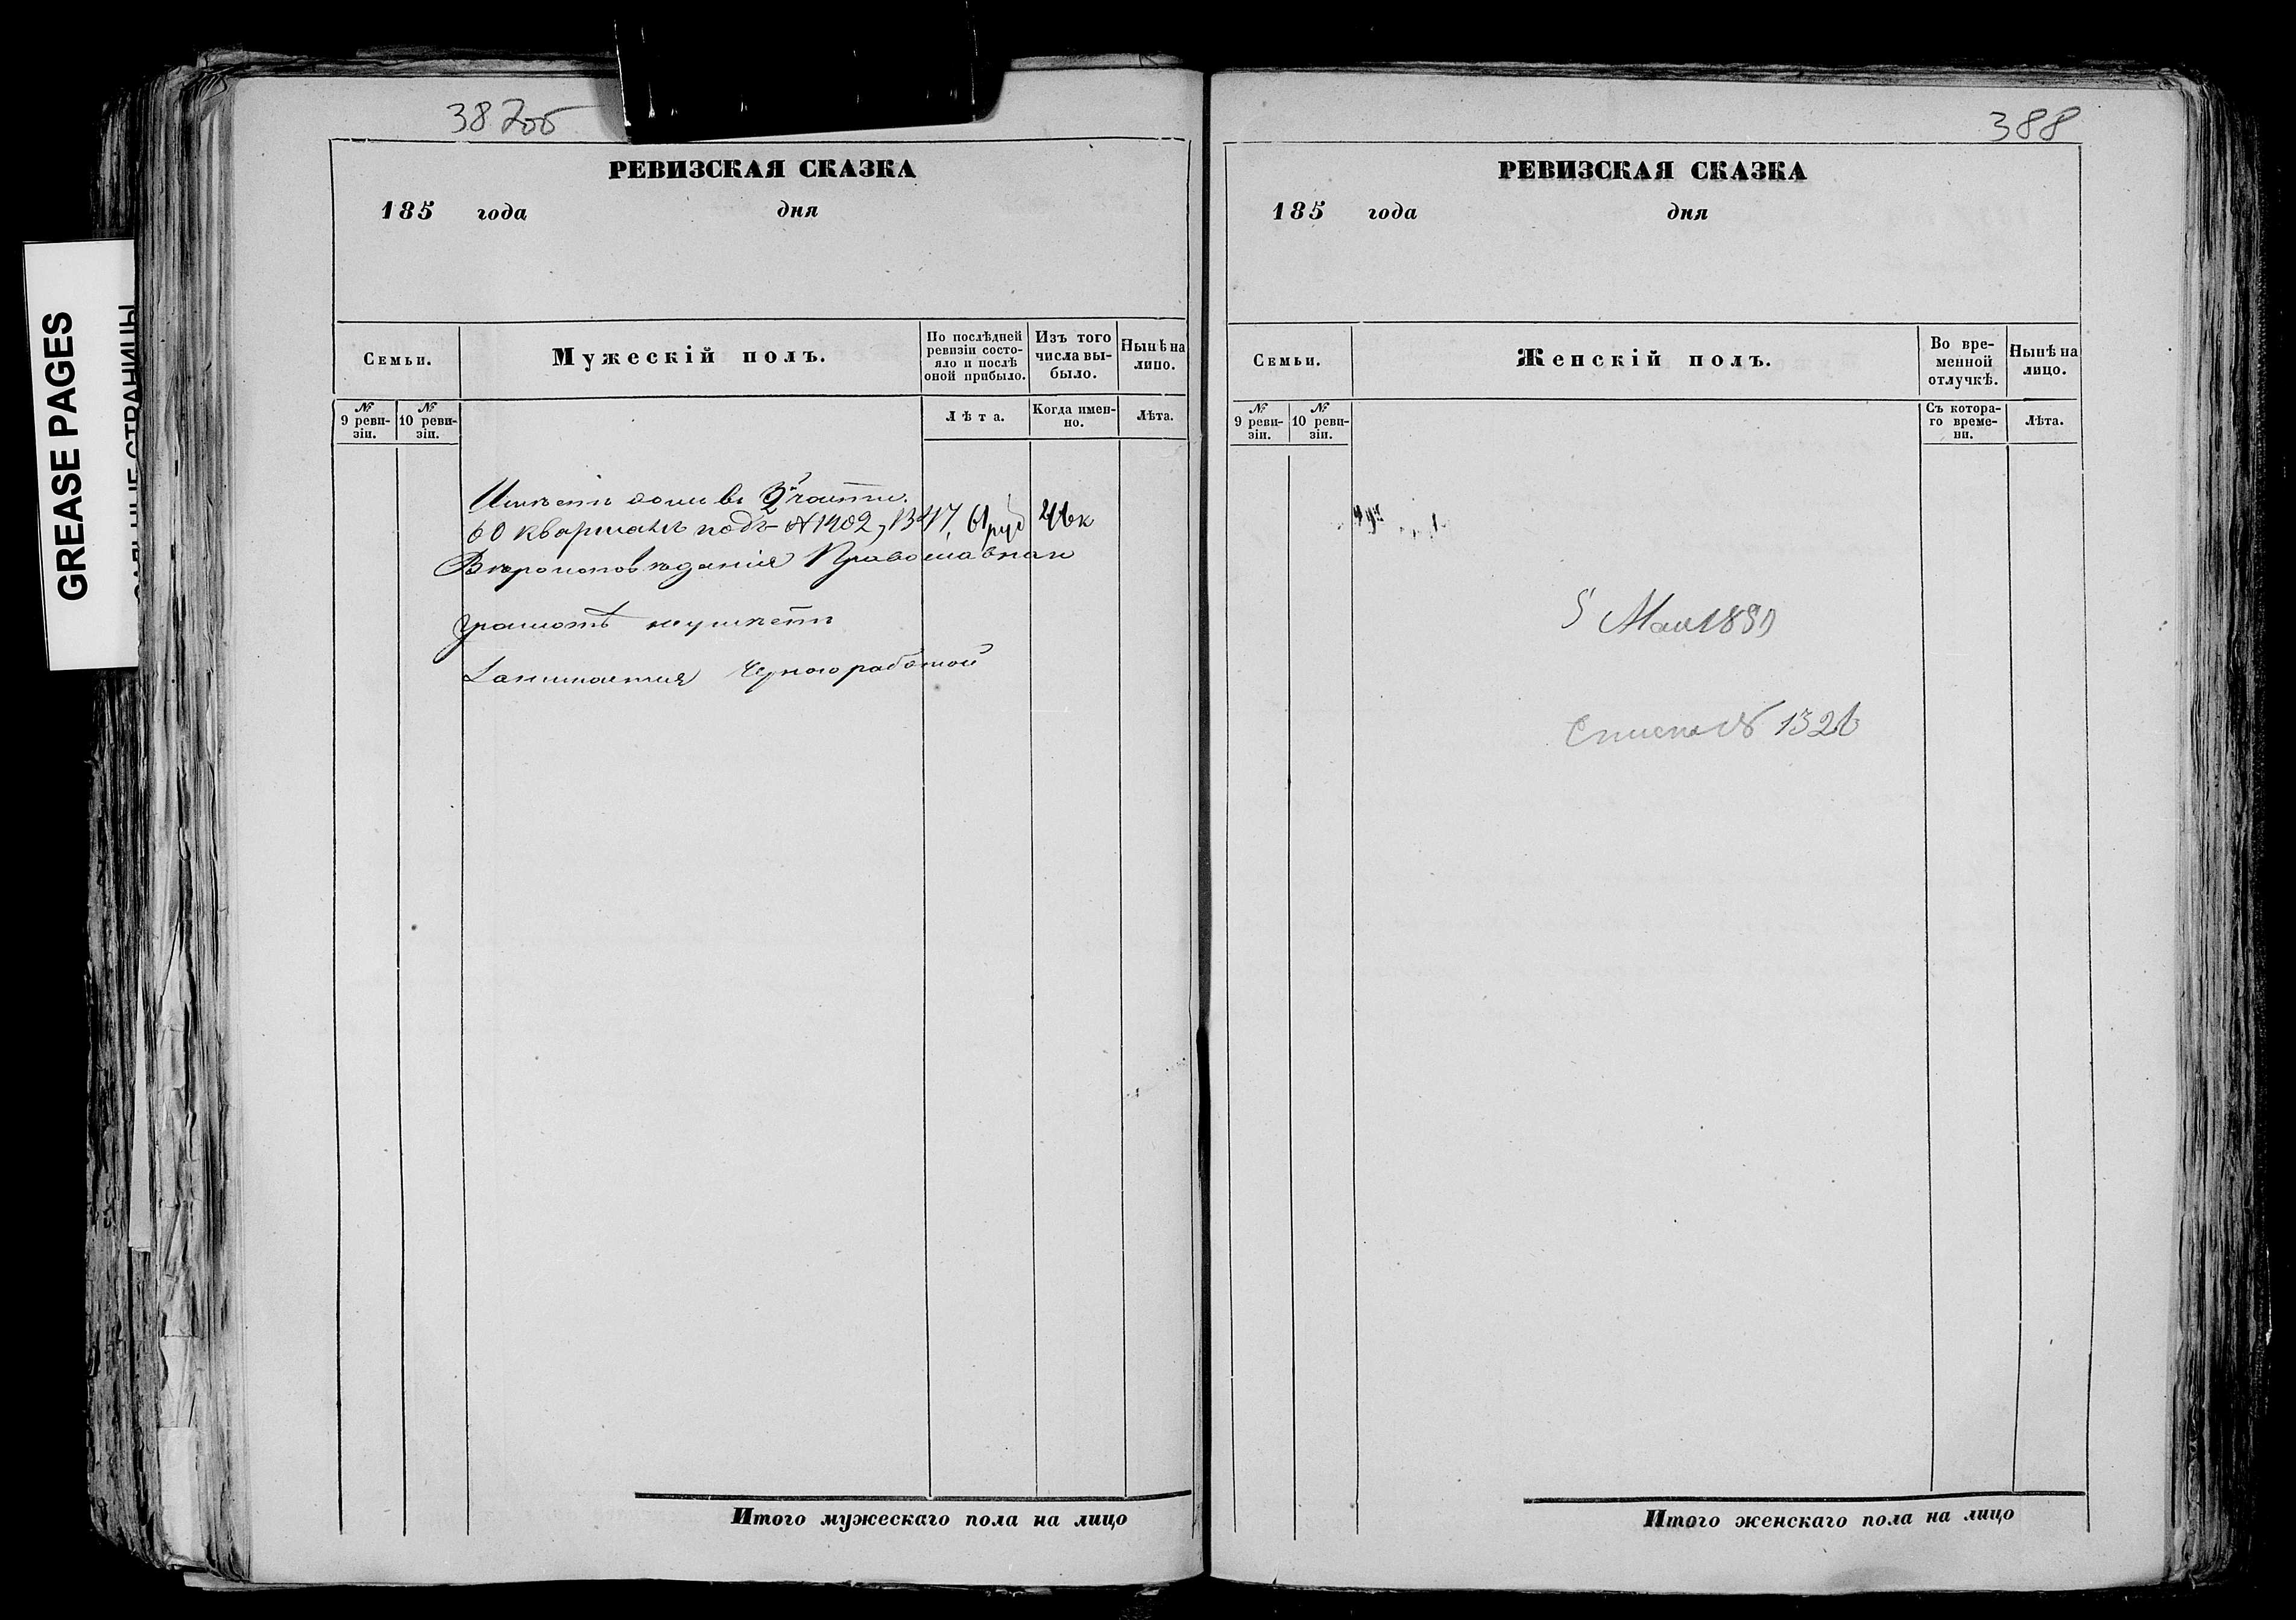 GREASE PAGES
387об
РЕВИЗСКАЯ СКАЗКА
185 года дня
Семьи.
Мужескій полъ.
По послѣдней ревизіи состо-
яло и послѣ оной прибыло.
Изъ того числа вы-
было.
Нынѣ на лицо.
№ 9 реви-
зіи.
№ 10 реви-
зіи.
Лѣта.
Когда имен-
но.
Лѣта.
Имѣетъ домъ въ 3й части
60 кварталѣ подъ № 1402, 1347, 61 руб 46 к
Вѣроисповѣданія Православнаго
грамотѣ неумѣетъ
Занимается Черною работой
Итого мужескаго пола на лицо
388
РЕВИЗСКАЯ СКАЗКА
185 года дня
Семьи.
Женскій полъ.
Во вре-
менной
отлучкѣ.
Нынѣ на
лицо.
№ 9 реви-
зіи.
№ 10 реви-
зіи.
Съ котора-
го време-
ни.
Лѣта.
5 Мая 1859
№ 1326
Итого женскаго пола на лицо